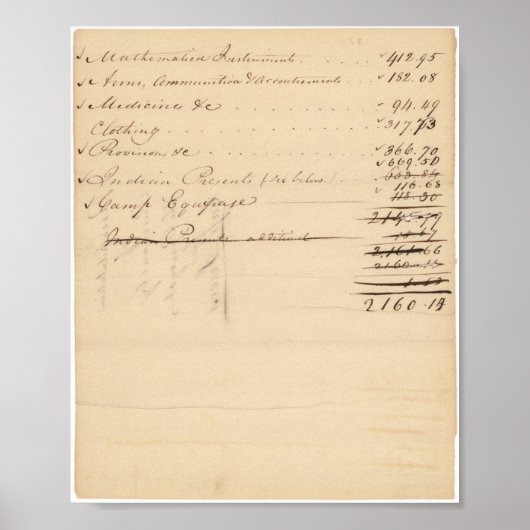 ✓ Mathematical Instruments . . . . ✓ 412.95
✓ Arms, Ammunition & Accoutrements . . ✓ 182.08
✓ Medicines &c . . . . . . . ✓ 94.49
Clothing . . . . . . . . ✓ 317.73
✓ Provisions &c . . . . . . ✓ 366.70
✓ 669.50
✓ Indian Presents (See below)
116.68
✓ Camp Equipage 118.30
2145.79
Indian Presents additional
2,161.66
2160.13
2160.14